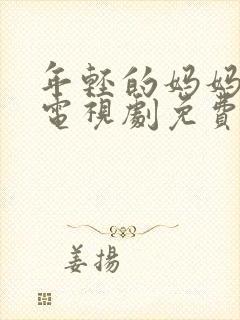 年輕的媽媽
電視劇免費
姜揚